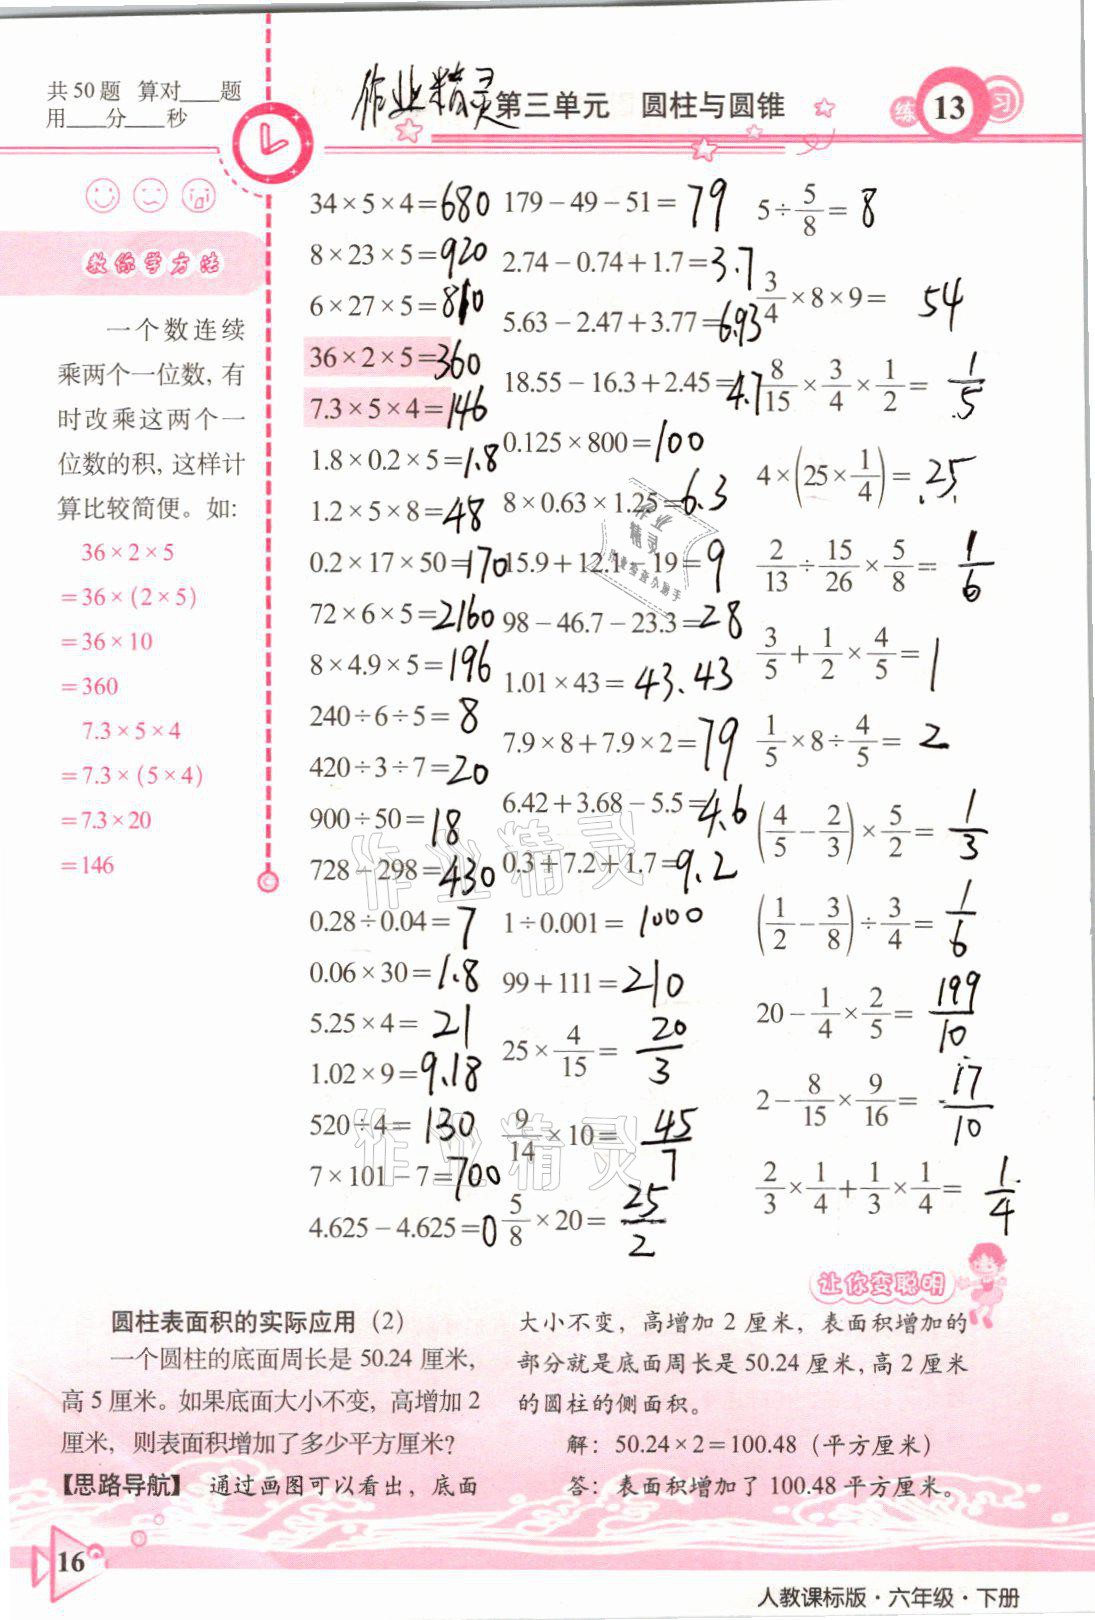 共50题 算对___题
用___分___秒
作业精灵
第三单元 圆柱与圆锥
练 13 习
教你学方法
一个数连续
乘两个一位数,有
时改乘这两个一
位数的积,这样计
算比较简便。如:
36×2×5
=36×(2×5)
=36×10
=360
7.3×5×4
=7.3×(5×4)
=7.3×20
=146
34×5×4=680
8×23×5=920
6×27×5=810
36×2×5=360
7.3×5×4=146
1.8×0.2×5=1.8
1.2×5×8=48
0.2×17×50=170
72×6×5=2160
8×4.9×5=196
240÷6÷5=8
420÷3÷7=20
900÷50=18
728-298=430
0.28÷0.04=7
0.06×30=1.8
5.25×4=21
1.02×9=9.18
520÷4=130
7×101-7=700
4.625-4.625=0
179-49-51=79
2.74-0.74+1.7=3.7
5.63-2.47+3.77=6.93
18.55-16.3+2.45=4.7
0.125×800=100
8×0.63×1.25=6.3
15.9+12.1-19=9
98-46.7-23.3=28
1.01×43=43.43
7.9×8+7.9×2=79
6.42+3.68-5.5=4.6
0.3+7.2+1.7=9.2
1÷0.001=1000
99+111=210
25×4/15=20/3
9/14×10=45/7
5/8×20=25/2
5÷5/8=8
3/4×8×9=54
8/15×3/4×1/2=1/5
4×(25×1/4)=25
2/13÷15/26×5/8=1/6
3/5+1/2×4/5=1
1/5×8÷4/5=2
(4/5-2/3)×5/2=1/3
(1/2-3/8)÷3/4=1/6
20-1/4×2/5=199/10
2-8/15×9/16=17/10
2/3×1/4+1/3×1/4=1/4
作业
精灵
作业精灵
作业精灵
让你变聪明
圆柱表面积的实际应用(2)
一个圆柱的底面周长是50.24厘米,
高5厘米。如果底面大小不变,高增加2
厘米,则表面积增加了多少平方厘米?
【思路导航】 通过画图可以看出,底面
大小不变,高增加2厘米,表面积增加的
部分就是底面周长是50.24厘米,高2厘米
的圆柱的侧面积。
解:50.24×2=100.48(平方厘米)
答:表面积增加了100.48平方厘米。
16
人教课标版·六年级·下册